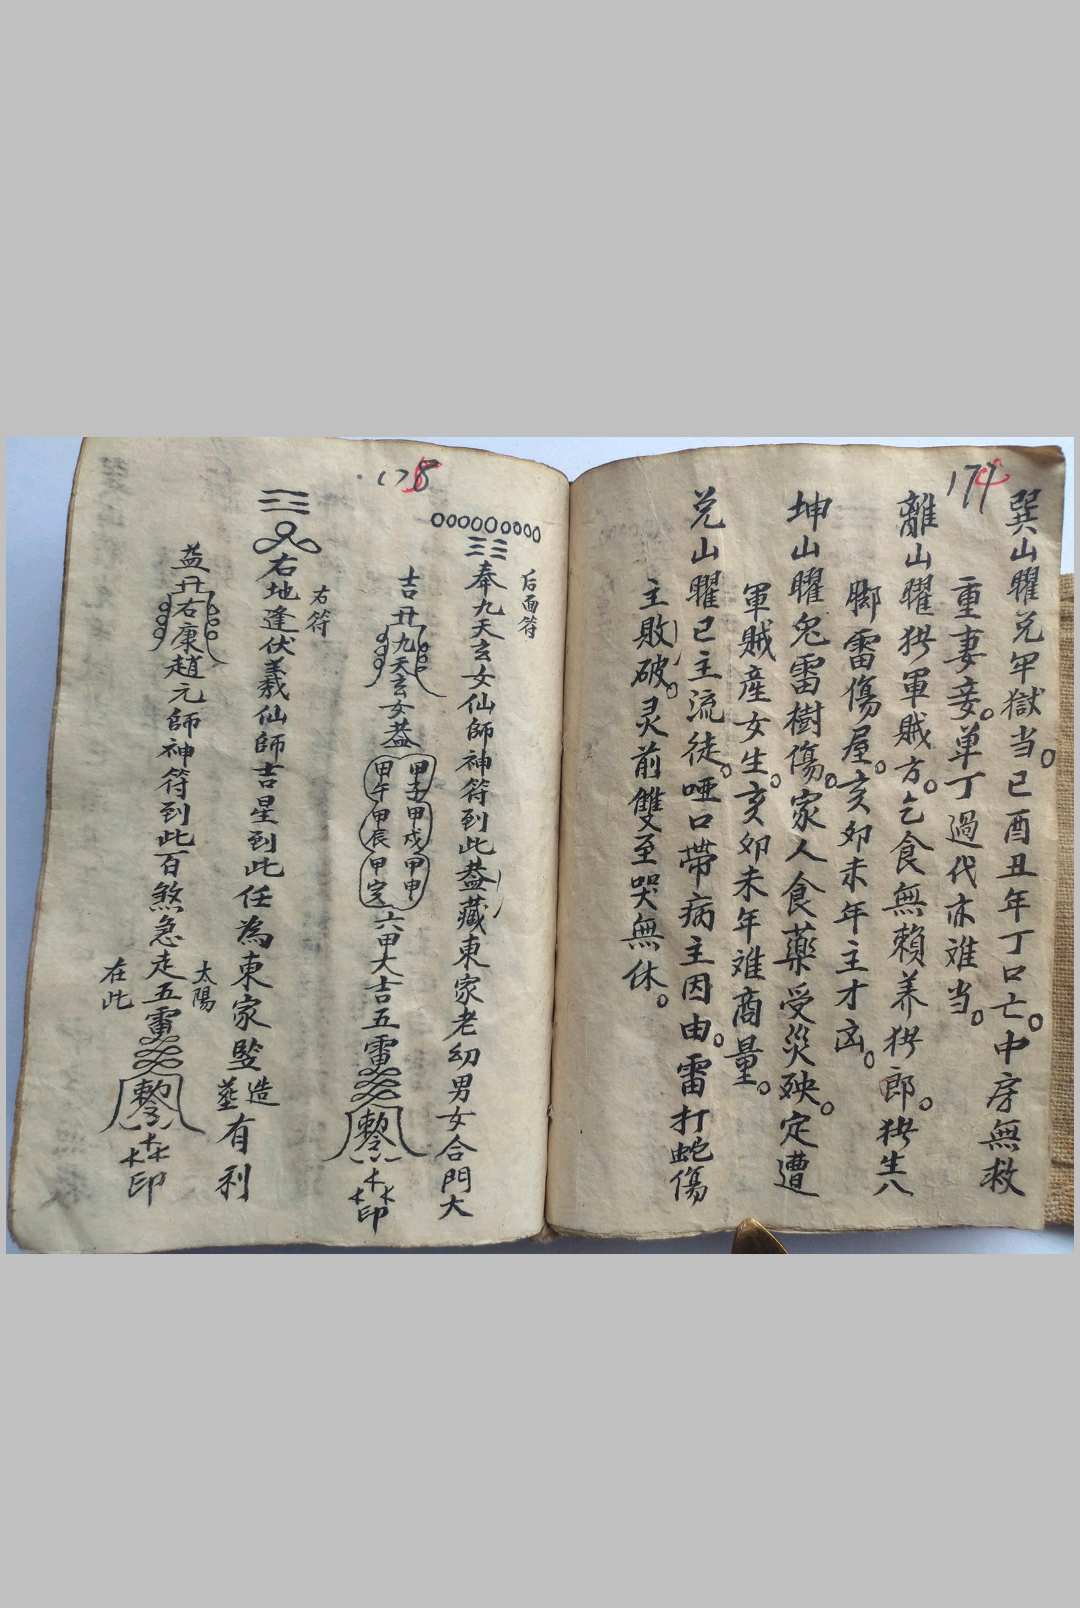 174
巽山曜兑牢獄当。巳酉丑年丁口亡。中房無救
重妻妾。単丁過代亦难当。
離山曜𤞑軍贼方。乞食無賴养𤞑郎。𤞑生八
脚雷傷屋。亥夘未年主才凶。
坤山曜兔雷樹傷。家人食藥受災殃。定遭
軍贼産女生。亥夘未年难商量。
兑山曜巳主流徒。哑口帶病主因由。雷打蛇傷
主敗破。灵前雙至哭無休。
178
后面符
奉九天玄女仙師神符到此葢藏東家老幼男女合門大
吉
九天玄女葢
甲子甲戌甲申
甲午甲辰甲寅
六甲大吉五雷
印
右符
右地逢伏羲仙師吉星到此任為東家竪造葬有利
益
右康趙元師神符到此百煞急走五雷
太陽
在此
印